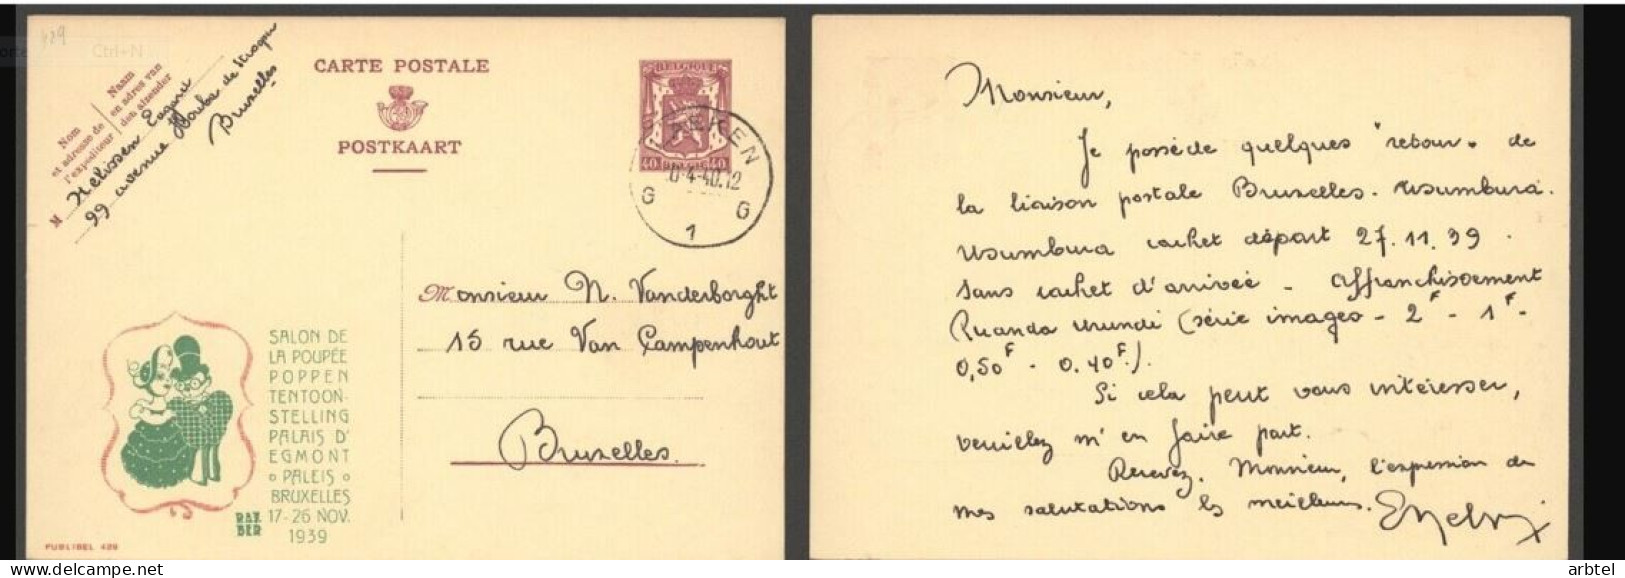 429
Ctrl+N
Nom
et adresse de
l'expéditeur
Naam
en adres van
den afzender
M Nelissen Edgard
99 avenue Houba de Strooper
Bruxelles
CARTE POSTALE
POSTKAART
BELGIQUE
40 BELGIE 40
LAEKEN
0-4-40.12
G 1 G
Monsieur N. Vanderborght
15 rue Van Campenhout
Bruxelles.
SALON DE
LA POUPÉE
POPPEN
TENTOON-
STELLING
PALAIS D'
EGMONT
PALEIS
BRUXELLES
17-26 NOV.
1939
PUBLIBEL 429
Monsieur,
Je possède quelques "retour" de
la liaison postale Bruxelles. Usumbura.
Usumbura cachet départ 27.11.39.
Sans cachet d'arrivée - affranchissement
Ruanda Urundi (série images - 2F - 1F -
0,50F - 0.40F.).
Si cela peut vous intéresser,
veuillez m'en faire part.
Recevez, Monsieur, l'expression de
mes salutations les meilleures.
arbtel
delcampe.net